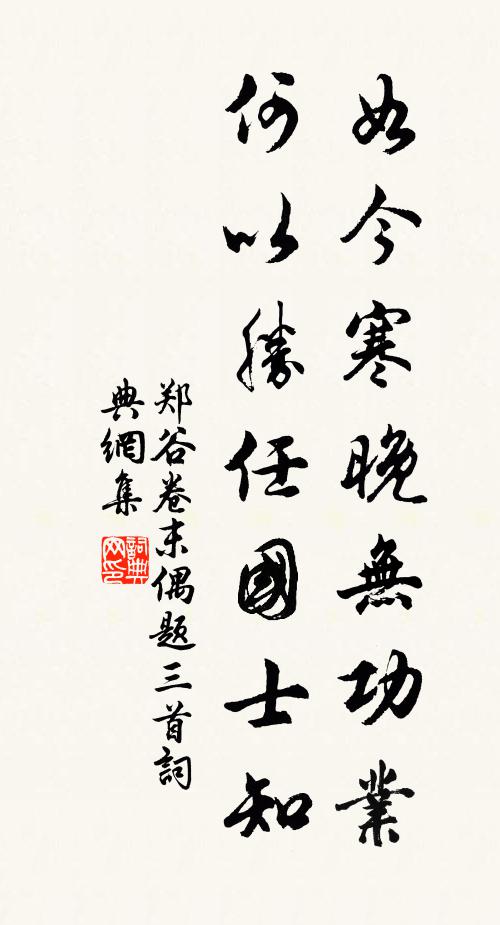 如今寒晚無功業
何以勝任國士知
郑谷卷末偶题三首詞
典網集
詞典網印